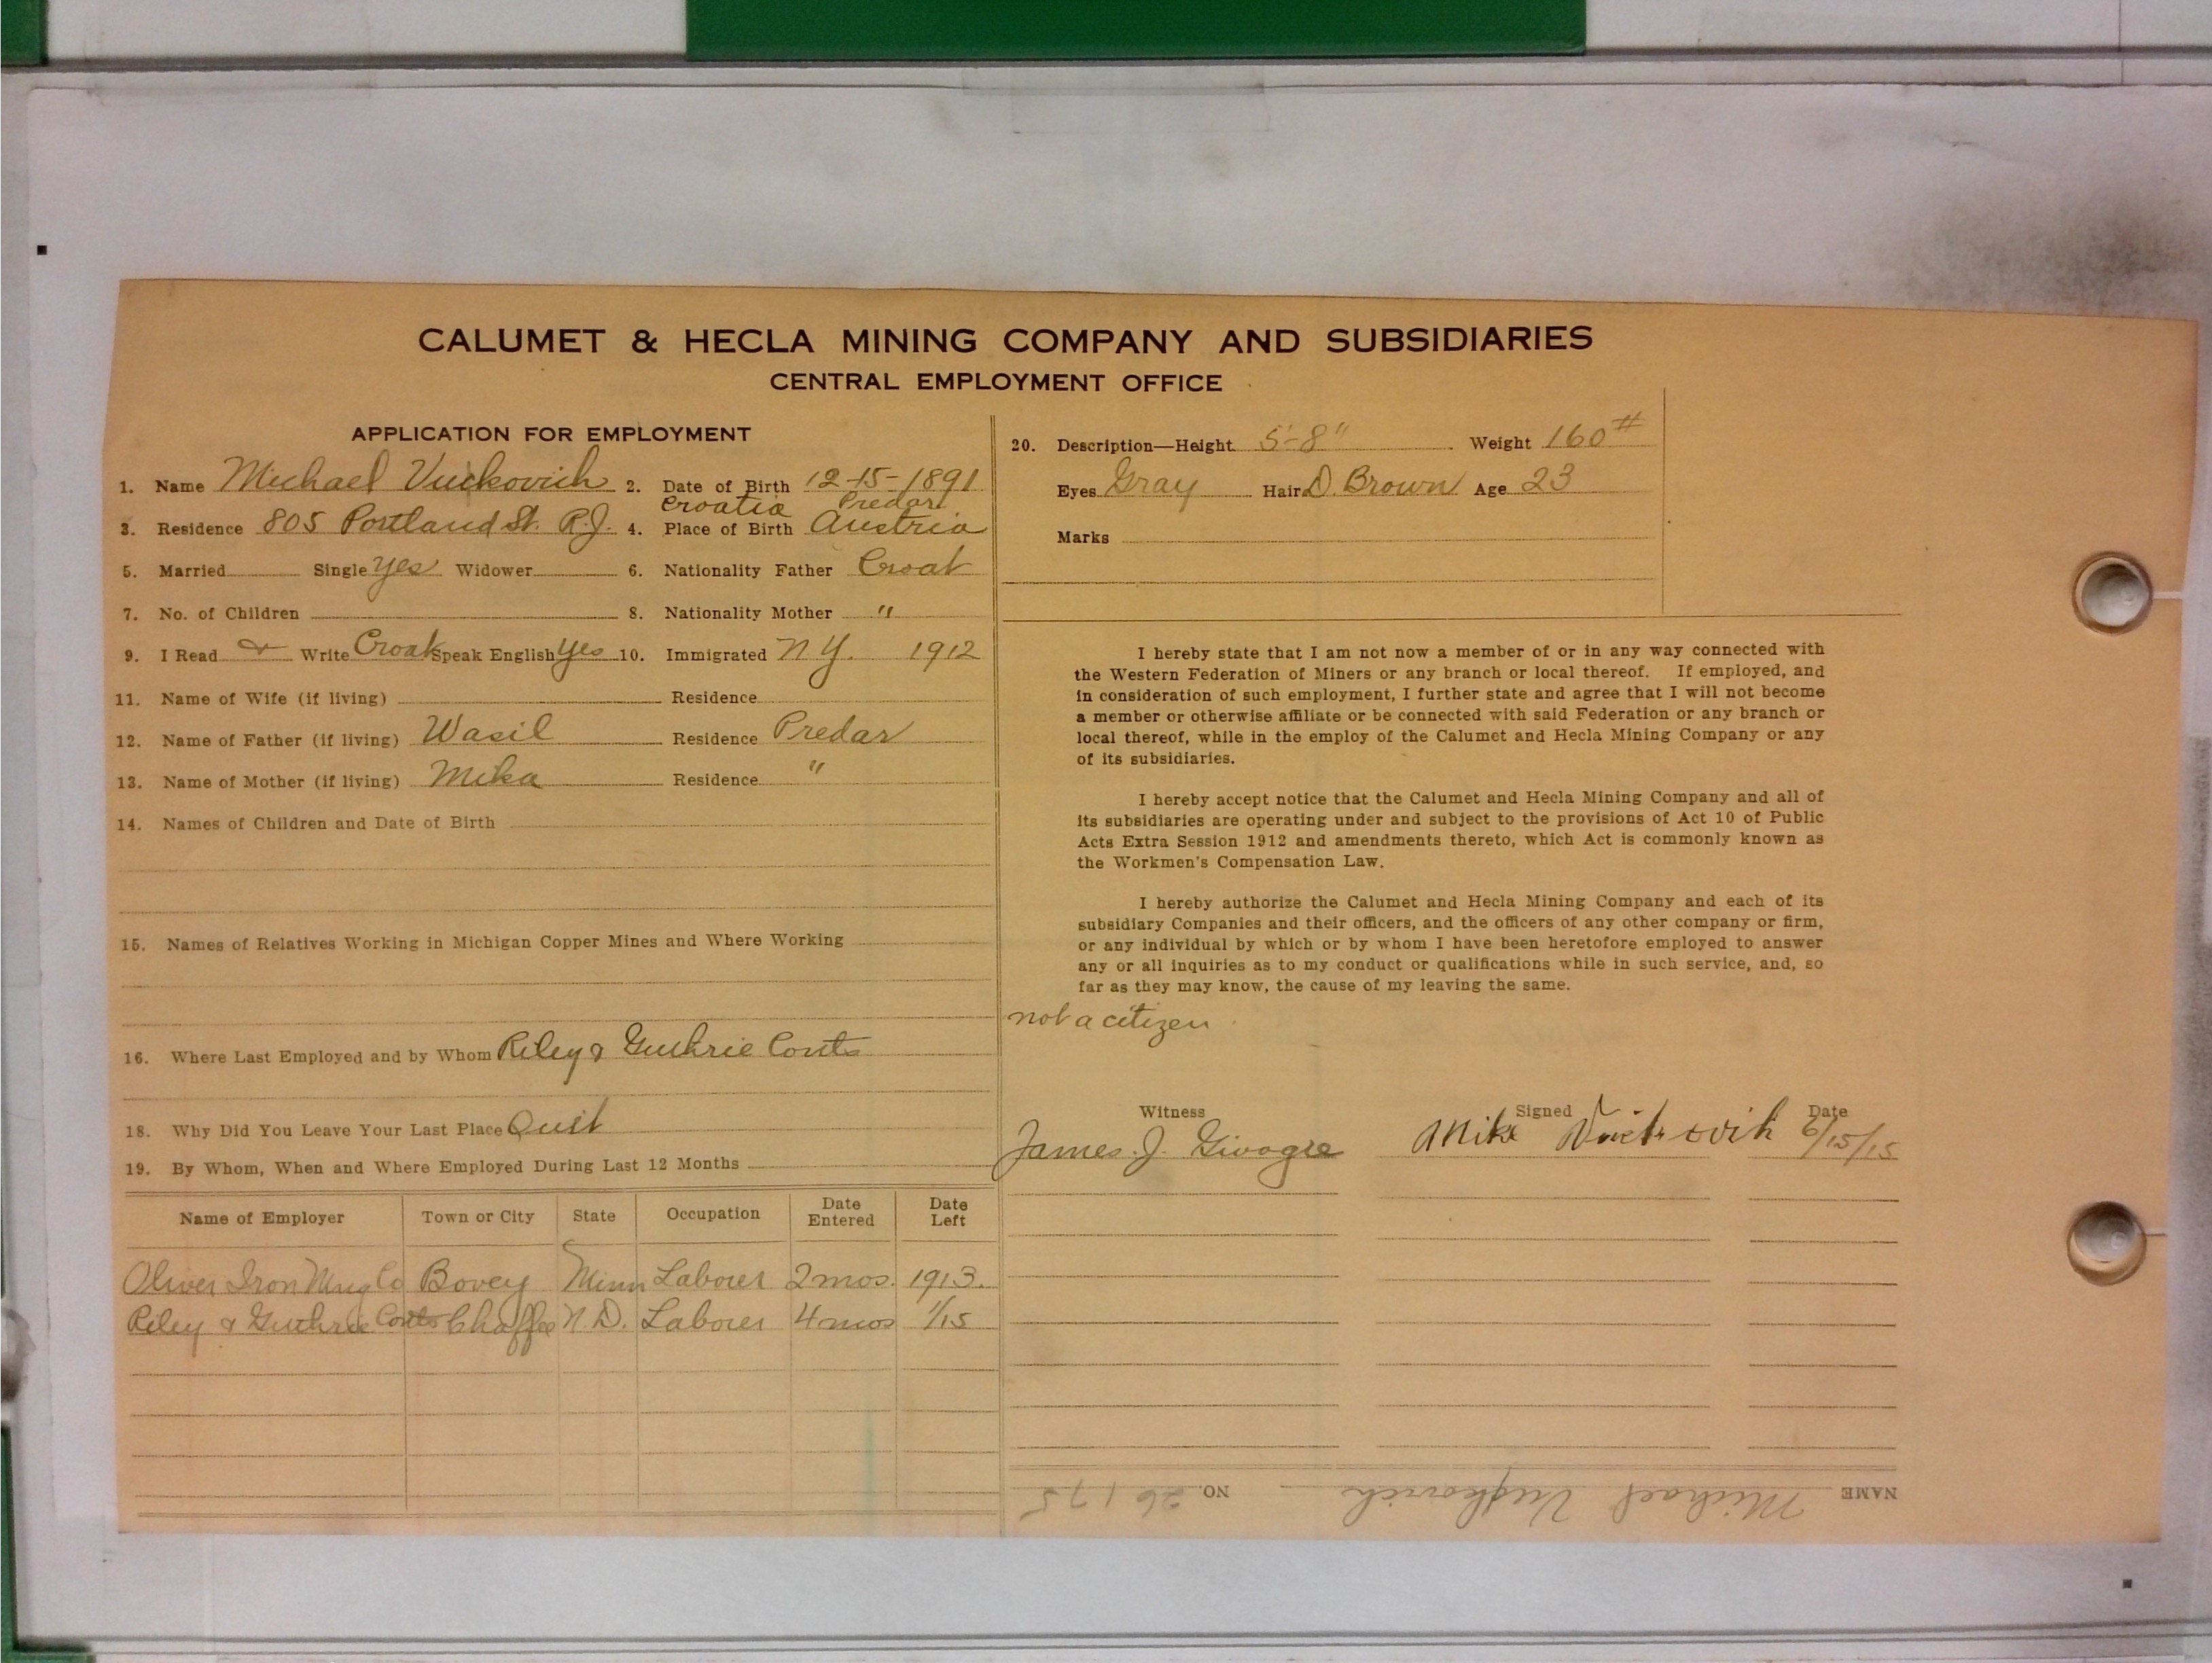 CALUMET & HECLA MINING COMPANY AND SUBSIDIARIES
CENTRAL EMPLOYMENT OFFICE
APPLICATION FOR EMPLOYMENT
1. Name Michael Vuckovich 2. Date of Birth 12-15-1891
Croatia Predar
3. Residence 805 Portland St. R.J. 4. Place of Birth Austria
5. Married Single Yes Widower 6. Nationality Father Croat
7. No. of Children 8. Nationality Mother "
9. I Read & Write Croat Speak English Yes 10. Immigrated N.Y. 1912
11. Name of Wife (if living) Residence
12. Name of Father (if living) Wasil Residence Predar
13. Name of Mother (if living) Mika Residence "
14. Names of Children and Date of Birth
15. Names of Relatives Working in Michigan Copper Mines and Where Working
16. Where Last Employed and by Whom Riley & Guthrie Conts
18. Why Did You Leave Your Last Place Quit
19. By Whom, When and Where Employed During Last 12 Months
Name of Employer Town or City State Occupation Date Entered Date Left
Oliver Iron Mng Co Bovey Minn Laborer 2 mos. 1913.
Riley & Guthrie Conts Chaffee N.D. Laborer 4 mos 1/15
20. Description—Height 5'-8" Weight 160#
Eyes Gray Hair D. Brown Age 23
Marks
I hereby state that I am not now a member of or in any way connected with
the Western Federation of Miners or any branch or local thereof. If employed, and
in consideration of such employment, I further state and agree that I will not become
a member or otherwise affiliate or be connected with said Federation or any branch or
local thereof, while in the employ of the Calumet and Hecla Mining Company or any
of its subsidiaries.
I hereby accept notice that the Calumet and Hecla Mining Company and all of
its subsidiaries are operating under and subject to the provisions of Act 10 of Public
Acts Extra Session 1912 and amendments thereto, which Act is commonly known as
the Workmen's Compensation Law.
I hereby authorize the Calumet and Hecla Mining Company and each of its
subsidiary Companies and their officers, and the officers of any other company or firm,
or any individual by which or by whom I have been heretofore employed to answer
any or all inquiries as to my conduct or qualifications while in such service, and, so
far as they may know, the cause of my leaving the same.
not a citizen
Witness Signed Date
James. J. Mike 6/15/15
NAME Michael Vuckovich NO. 26175